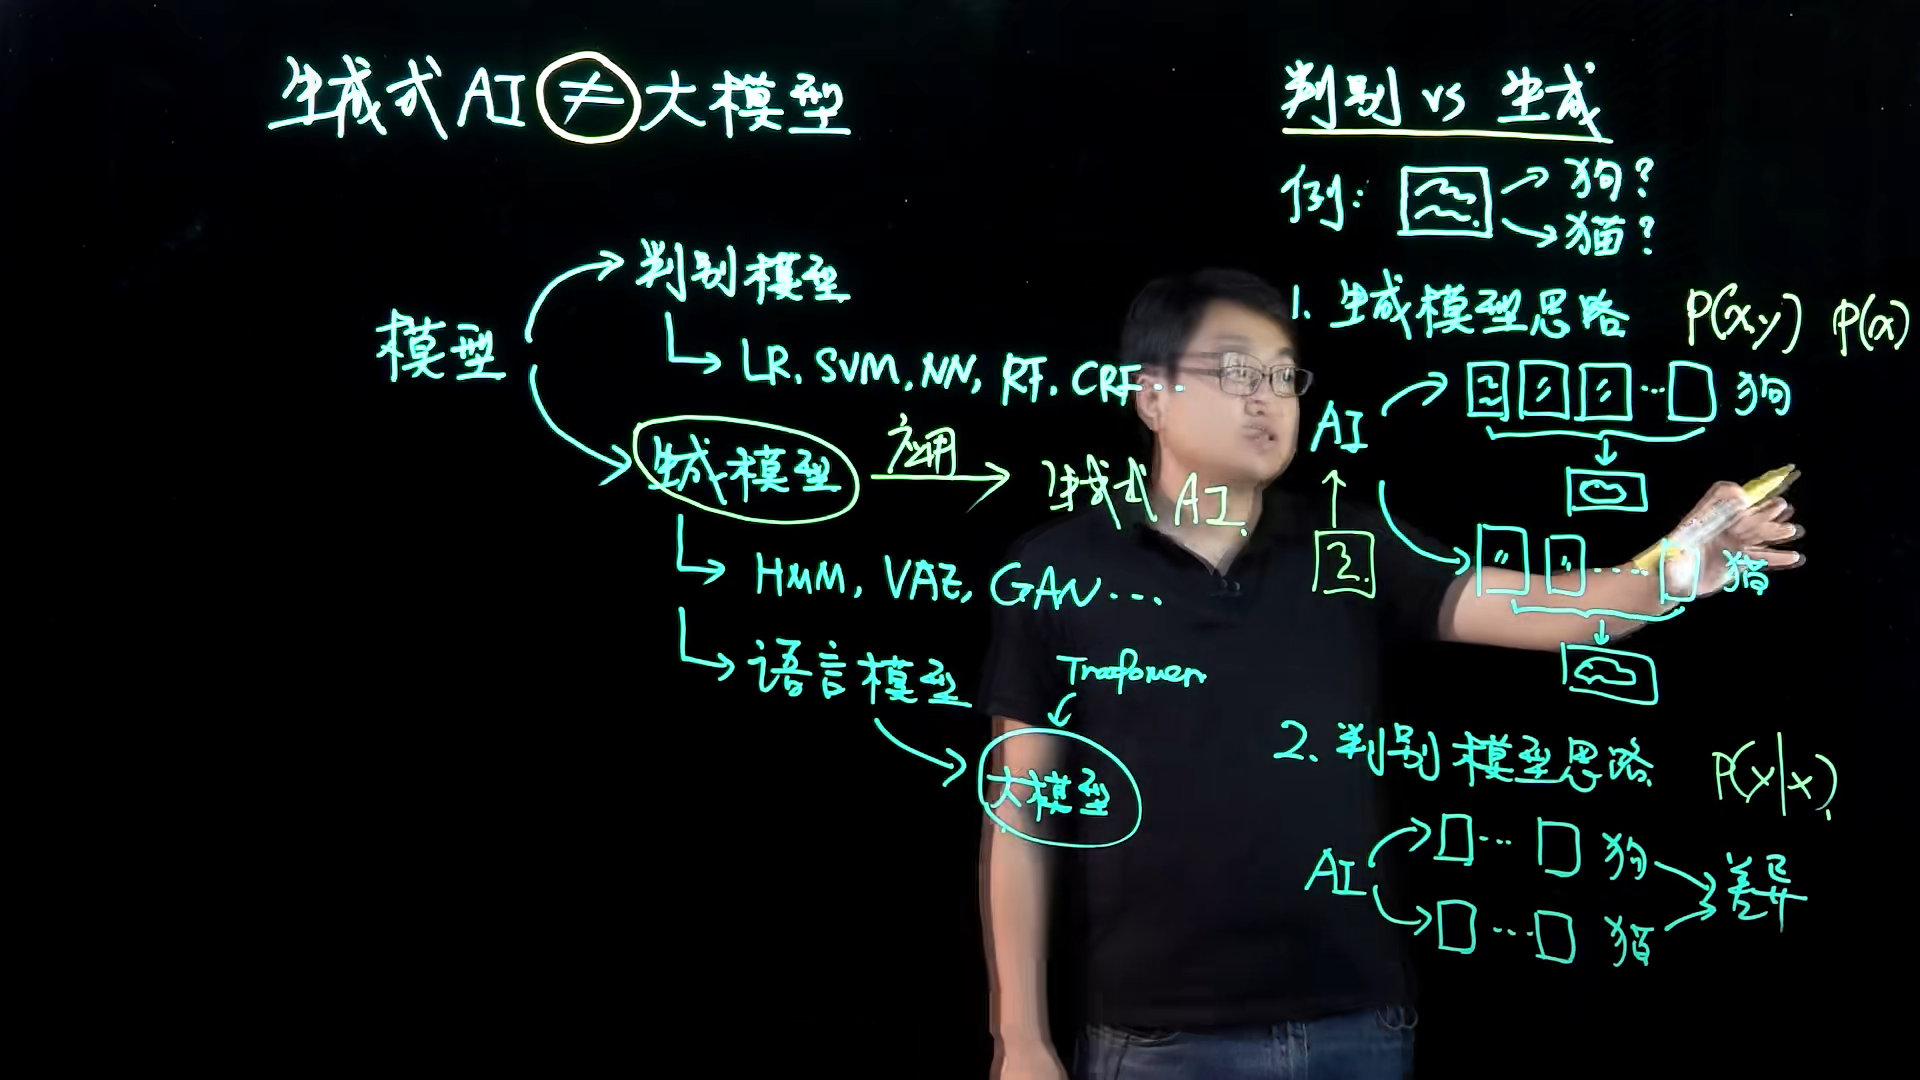 生成式 AI ≠ 大模型
模型
判别模型
LR, SVM, NN, RF, CRF...
生成模型 应用 生成式 AI.
HMM, VAE, GAN...
语言模型
Tranformer
大模型
判别 vs 生成
例: 狗?
猫?
1. 生成模型思路 P(x,y) P(x)
AI
... 狗
2.
.... 猫
2. 判别模型思路 P(y|x)
AI
... 狗
... 猫
差异